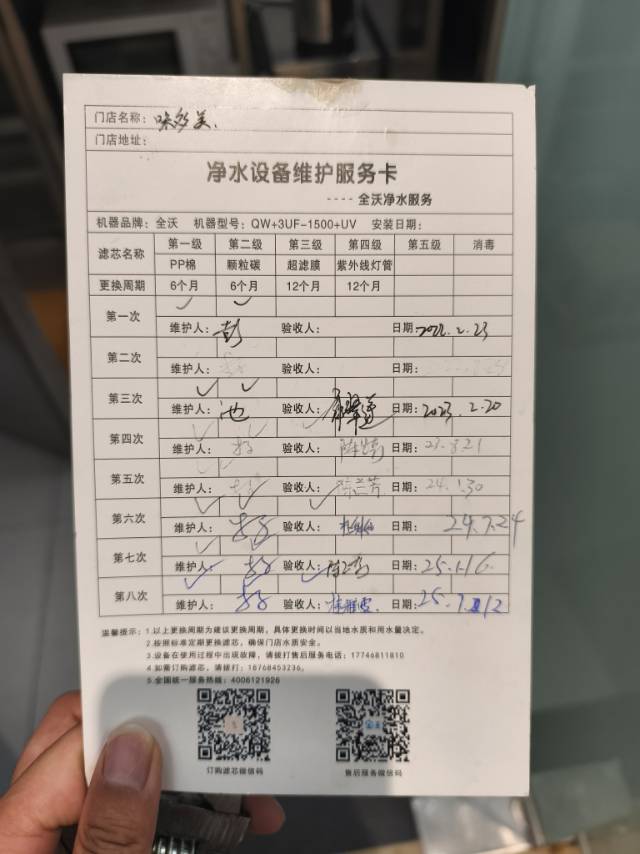 门店名称: 味多美.
门店地址:
净水设备维护服务卡
---- 全沃净水服务
机器品牌: 全沃 机器型号: QW+3UF-1500+UV 安装日期:
滤芯名称 第一级 第二级 第三级 第四级 第五级 消毒
PP棉 颗粒碳 超滤膜 紫外线灯管
更换周期 6个月 6个月 12个月 12个月
第一次 ✓ ✓
维护人: 彭 验收人: 日期: 2022.2.23
第二次
维护人: 验收人: 日期:
第三次 ✓ ✓
维护人: 池 验收人: 日期: 2023.2.20
第四次 ✓ ✓ ✓
维护人: 验收人: 日期: 23.8.21
第五次
维护人: 验收人: 陈兰芳 日期: 24.1.30
第六次 ✓ ✓ ✓
维护人: 验收人: 日期: 24.7.24
第七次 ✓ ✓
维护人: 验收人: 日期: 25.1.16
第八次 ✓ ✓
维护人: 验收人: 日期: 25.7.12
温馨提示: 1.以上更换周期为建议更换周期,具体更换时间以当地水质和用水量决定。
2.按照标准定期更换滤芯,确保门店水质安全。
3.设备在使用过程中出现故障,请拨打售后服务电话: 17746811810
4.如需订购滤芯,请拨打: 18768453236。
5.全国统一服务热线: 4006121926
订购滤芯微信码 售后服务微信码